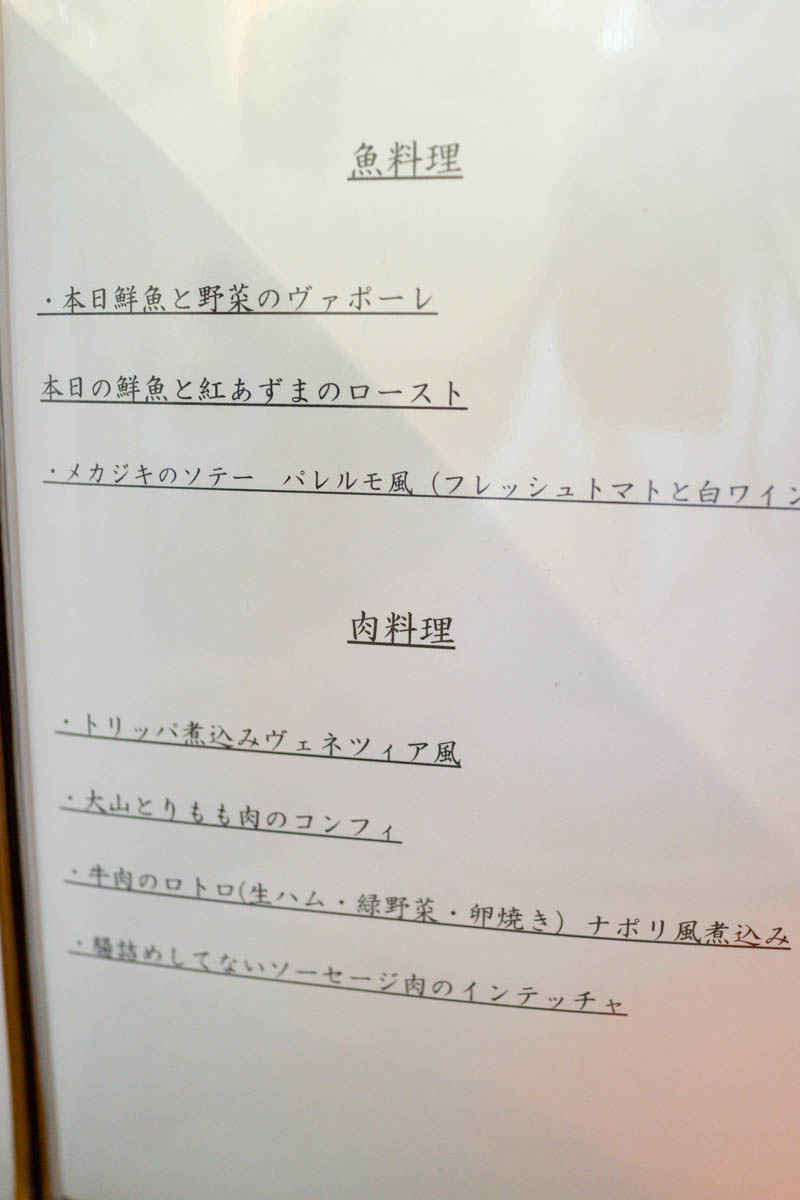 魚料理
・本日鮮魚と野菜のヴァポーレ
本日の鮮魚と紅あずまのロースト
・メカジキのソテー　パレルモ風（フレッシュトマトと白ワイン
肉料理
・トリッパ煮込みヴェネツィア風
・大山とりもも肉のコンフィ
・牛肉のロトロ(生ハム・緑野菜・卵焼き）ナポリ風煮込み
・腸詰めしてないソーセージ肉のインテッチャ